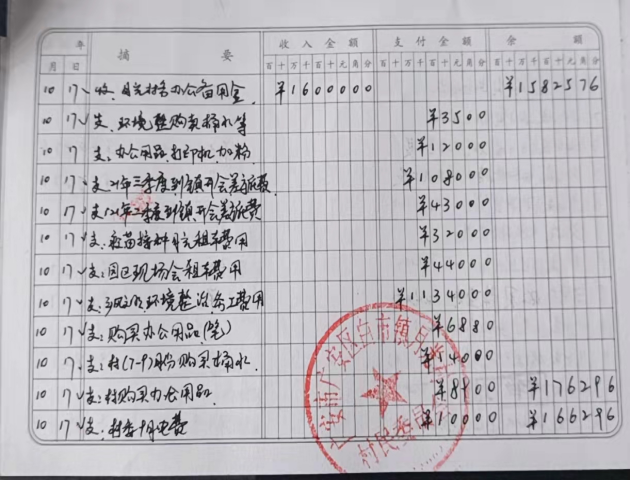 年 摘 要 收入金额 支付金额 余 额
月 日 百十万千百十元角分 百十万千百十元角分 百十万千百十元角分
10 17 收 办公备用金 ¥1600000 ¥1582576
10 17 支:环境整 购买桶水等 ¥3500
10 17 支:办公用品打印机加粉 ¥12000
10 17 支:21年三季度到镇开会差旅费 ¥108000
10 17 支:21年二季度到镇开会差旅费 ¥43000
10 17 支:疫苗接种 租车费用 ¥32000
10 17 支:园区现场会租车费用 ¥44000
10 17 支: 环境整治务工费用 ¥1134000
10 17 支:购买办公用品(笔) ¥6880
10 17 支:村(7-9)月份购买桶水 ¥14000
10 17 支:村购买办公用品 ¥8800 ¥176296
10 17 支:村委十月电费 ¥10000 ¥166296
广安市广安区白市镇
村民委员会